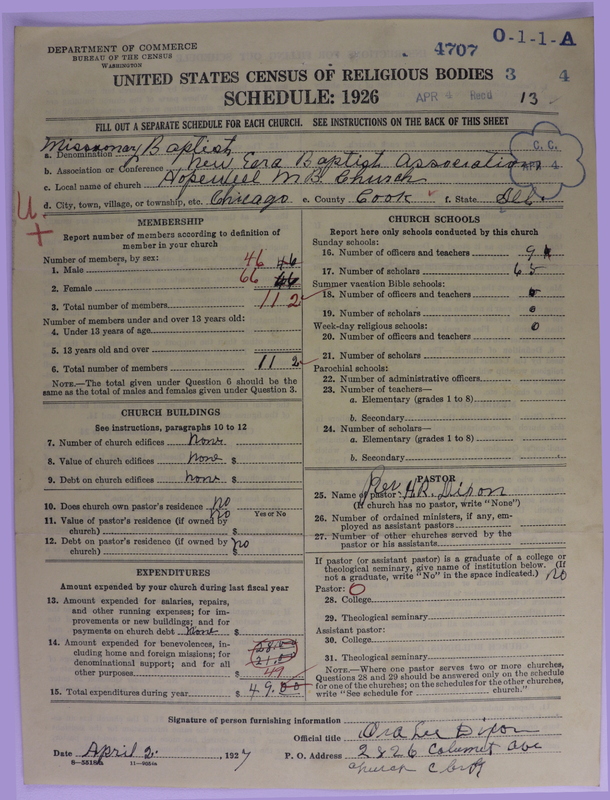 DEPARTMENT OF COMMERCE
BUREAU OF THE CENSUS
WASHINGTON
4707
0-1-1-A
UNITED STATES CENSUS OF RELIGIOUS BODIES 3 4
SCHEDULE: 1926 APR 4 Recd 13
FILL OUT A SEPARATE SCHEDULE FOR EACH CHURCH. SEE INSTRUCTIONS ON THE BACK OF THIS SHEET
C. C.
APR 4
a. Denomination Missionary Baptist
b. Association or Conference New Eara Baptist Association
c. Local name of church Hopewell M.B. Church
d. City, town, village, or township, etc. Chicago e. County Cook f. State Ill.
MEMBERSHIP
Report number of members according to definition of
member in your church
Number of members, by sex:
1. Male 46 46
2. Female 66 66
3. Total number of members 112
Number of members under and over 13 years old:
4. Under 13 years of age
5. 13 years old and over
6. Total number of members 112
NOTE.—The total given under Question 6 should be the
same as the total of males and females given under Question 3.
CHURCH BUILDINGS
See instructions, paragraphs 10 to 12
7. Number of church edifices none
8. Value of church edifices none $
9. Debt on church edifices none $
10. Does church own pastor's residence? no
Yes or No
11. Value of pastor's residence (if owned by no
church) $
12. Debt on pastor's residence (if owned by no
church) $
EXPENDITURES
Amount expended by your church during last fiscal year
13. Amount expended for salaries, repairs,
and other running expenses; for im-
provements or new buildings; and for
payments on church debt none $
14. Amount expended for benevolences, in-
cluding home and foreign missions; for
denominational support; and for all
other purposes $ 28.00
21.00
49
15. Total expenditures during year $ 49.00
CHURCH SCHOOLS
Report here only schools conducted by this church
Sunday schools:
16. Number of officers and teachers 9
17. Number of scholars 65
Summer vacation Bible schools:
18. Number of officers and teachers 0
19. Number of scholars 0
Week-day religious schools: 0
20. Number of officers and teachers
21. Number of scholars
Parochial schools:
22. Number of administrative officers
23. Number of teachers—
a. Elementary (grades 1 to 8)
b. Secondary
24. Number of scholars—
a. Elementary (grades 1 to 8)
b. Secondary
PASTOR
25. Name of pastor: Rev H.R. Dixon
(If church has no pastor, write "None")
26. Number of ordained ministers, if any, em-
ployed as assistant pastors
27. Number of other churches served by the
pastor or his assistants
If pastor (or assistant pastor) is a graduate of a college or
theological seminary, give name of institution below. (If
not a graduate, write "No" in the space indicated.) No
Pastor: O
28. College
29. Theological seminary
Assistant pastor:
30. College
31. Theological seminary
NOTE.—Where one pastor serves two or more churches,
Questions 28 and 29 should be answered only on the schedule
for one of the churches; on the schedules for the other churches,
write "See schedule for church."
Signature of person furnishing information
Official title Ora Lee Dixon
Date April 2, 1927 P. O. Address 2826 Calumet ave
Church Clerk